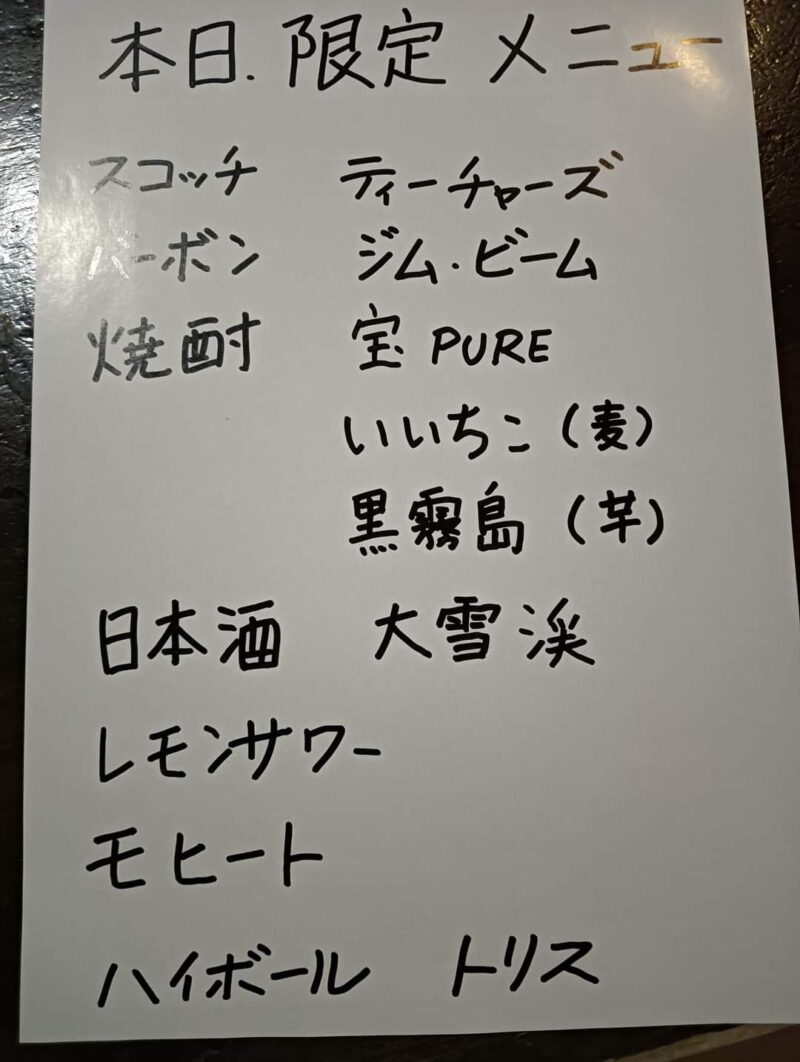 本日.限定 メニュー
スコッチ ティーチャーズ
バーボン ジム・ビーム
焼酎 宝 PURE
いいちこ(麦)
黒霧島(芋)
日本酒 大雪渓
レモンサワー
モヒート
ハイボール トリス